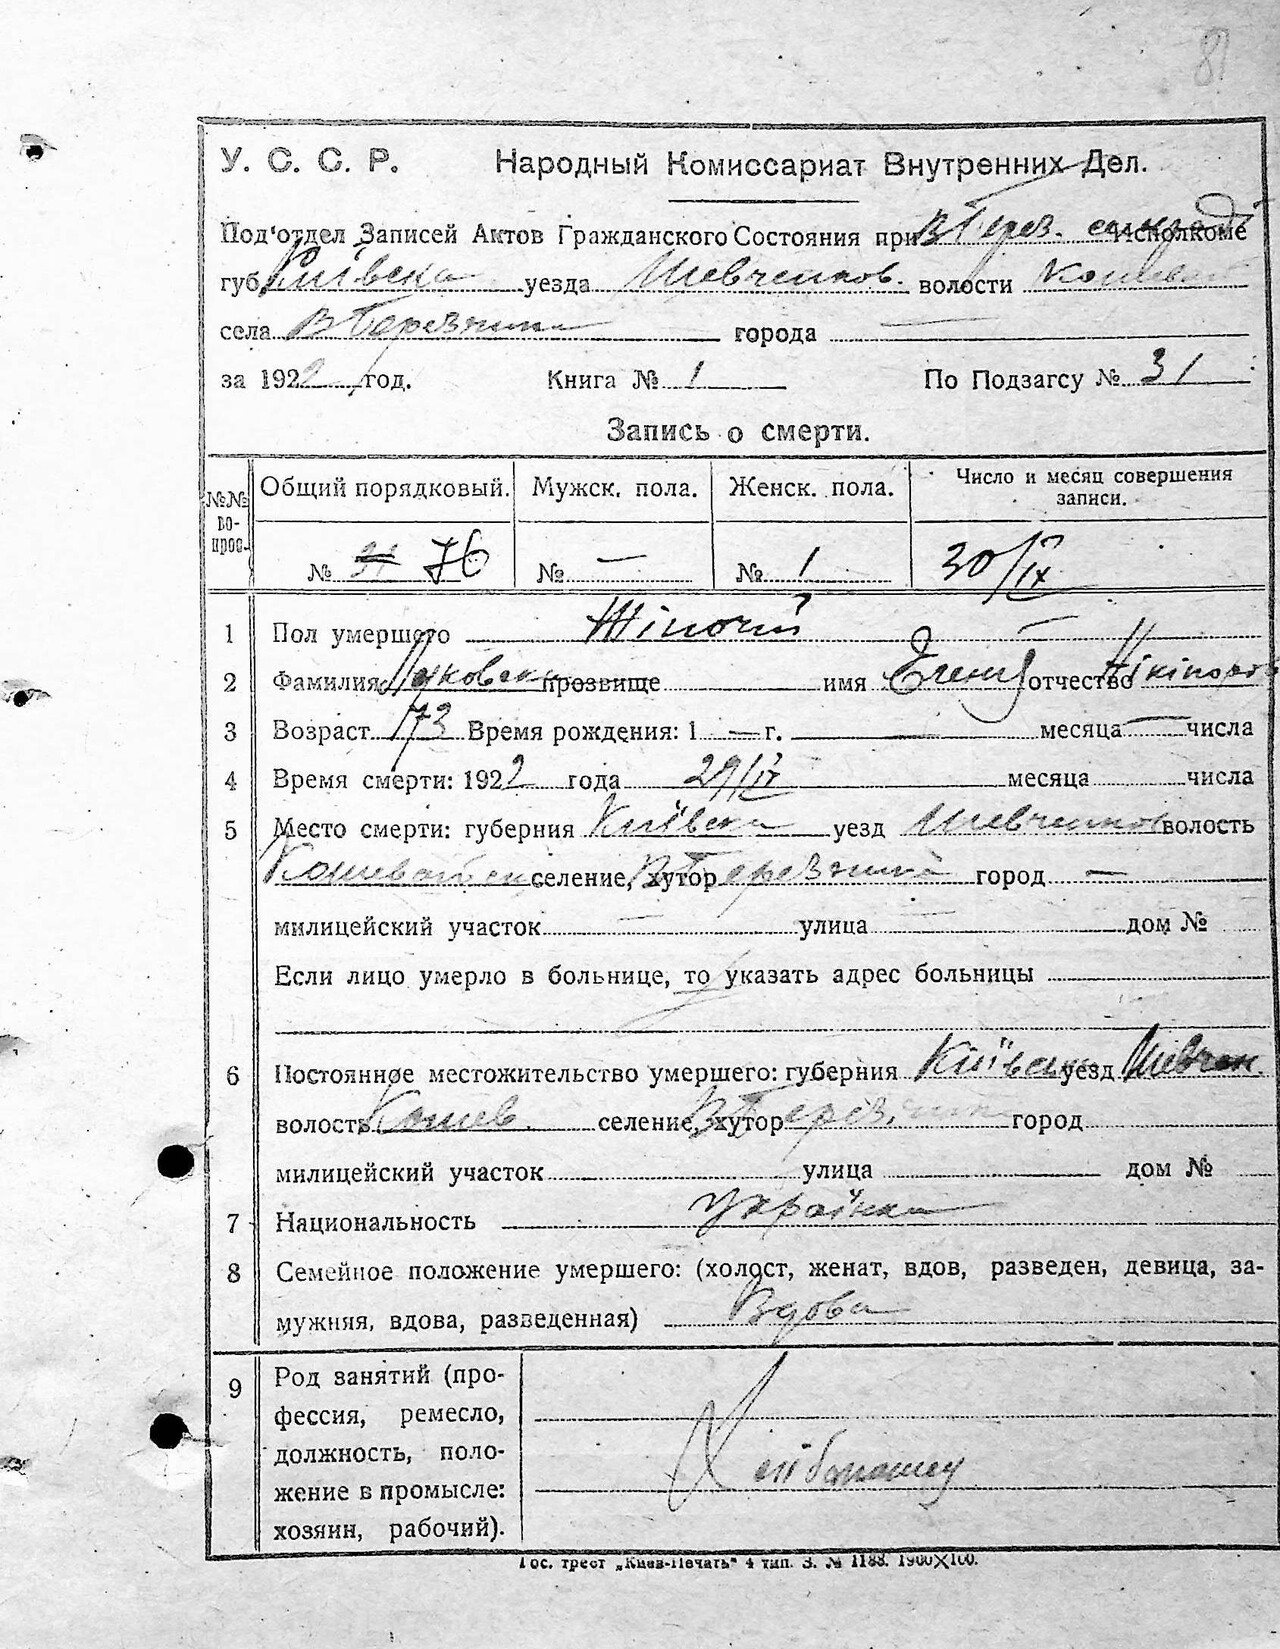 81
У. С. С. Р. Народный Комиссариат Внутренних Дел.
Под'отдел Записей Актов Гражданского Состояния при В Терез. Исполкоме
губ. Київська уезда Шевченков. волости Кошев
села В Березянка города
за 1922 год. Книга № 1 По Подзагсу № 31
Запись о смерти.
№№ во- прос. Общий порядковый. Мужск. пола. Женск. пола. Число и месяц совершения записи.
№ 31 76 № — № 1 30/IX
1 Пол умершего Жіночий
2 Фамилия прозвище имя Олена отчество
3 Возраст 73 Время рождения: 1 — г. — месяца — числа
4 Время смерти: 1922 года 29/IX месяца числа
5 Место смерти: губерния Київська уезд Шевченков волость
селение, хутор город —
милицейский участок — улица — дом №
Если лицо умерло в больнице, то указать адрес больницы
6 Постоянное местожительство умершего: губерния Київськ уезд Шевчен.
волость Кошев. селение, хутор город
милицейский участок улица дом №
7 Национальность Українка
8 Семейное положение умершего: (холост, женат, вдов, разведен, девица, за-
мужняя, вдова, разведенная) Вдова
9 Род занятий (про-
фессия, ремесло,
должность, поло-
жение в промысле:
хозяин, рабочий).
Гос. трест „Киев-Печать" 4 тип. З. № 1188. 1900×100.